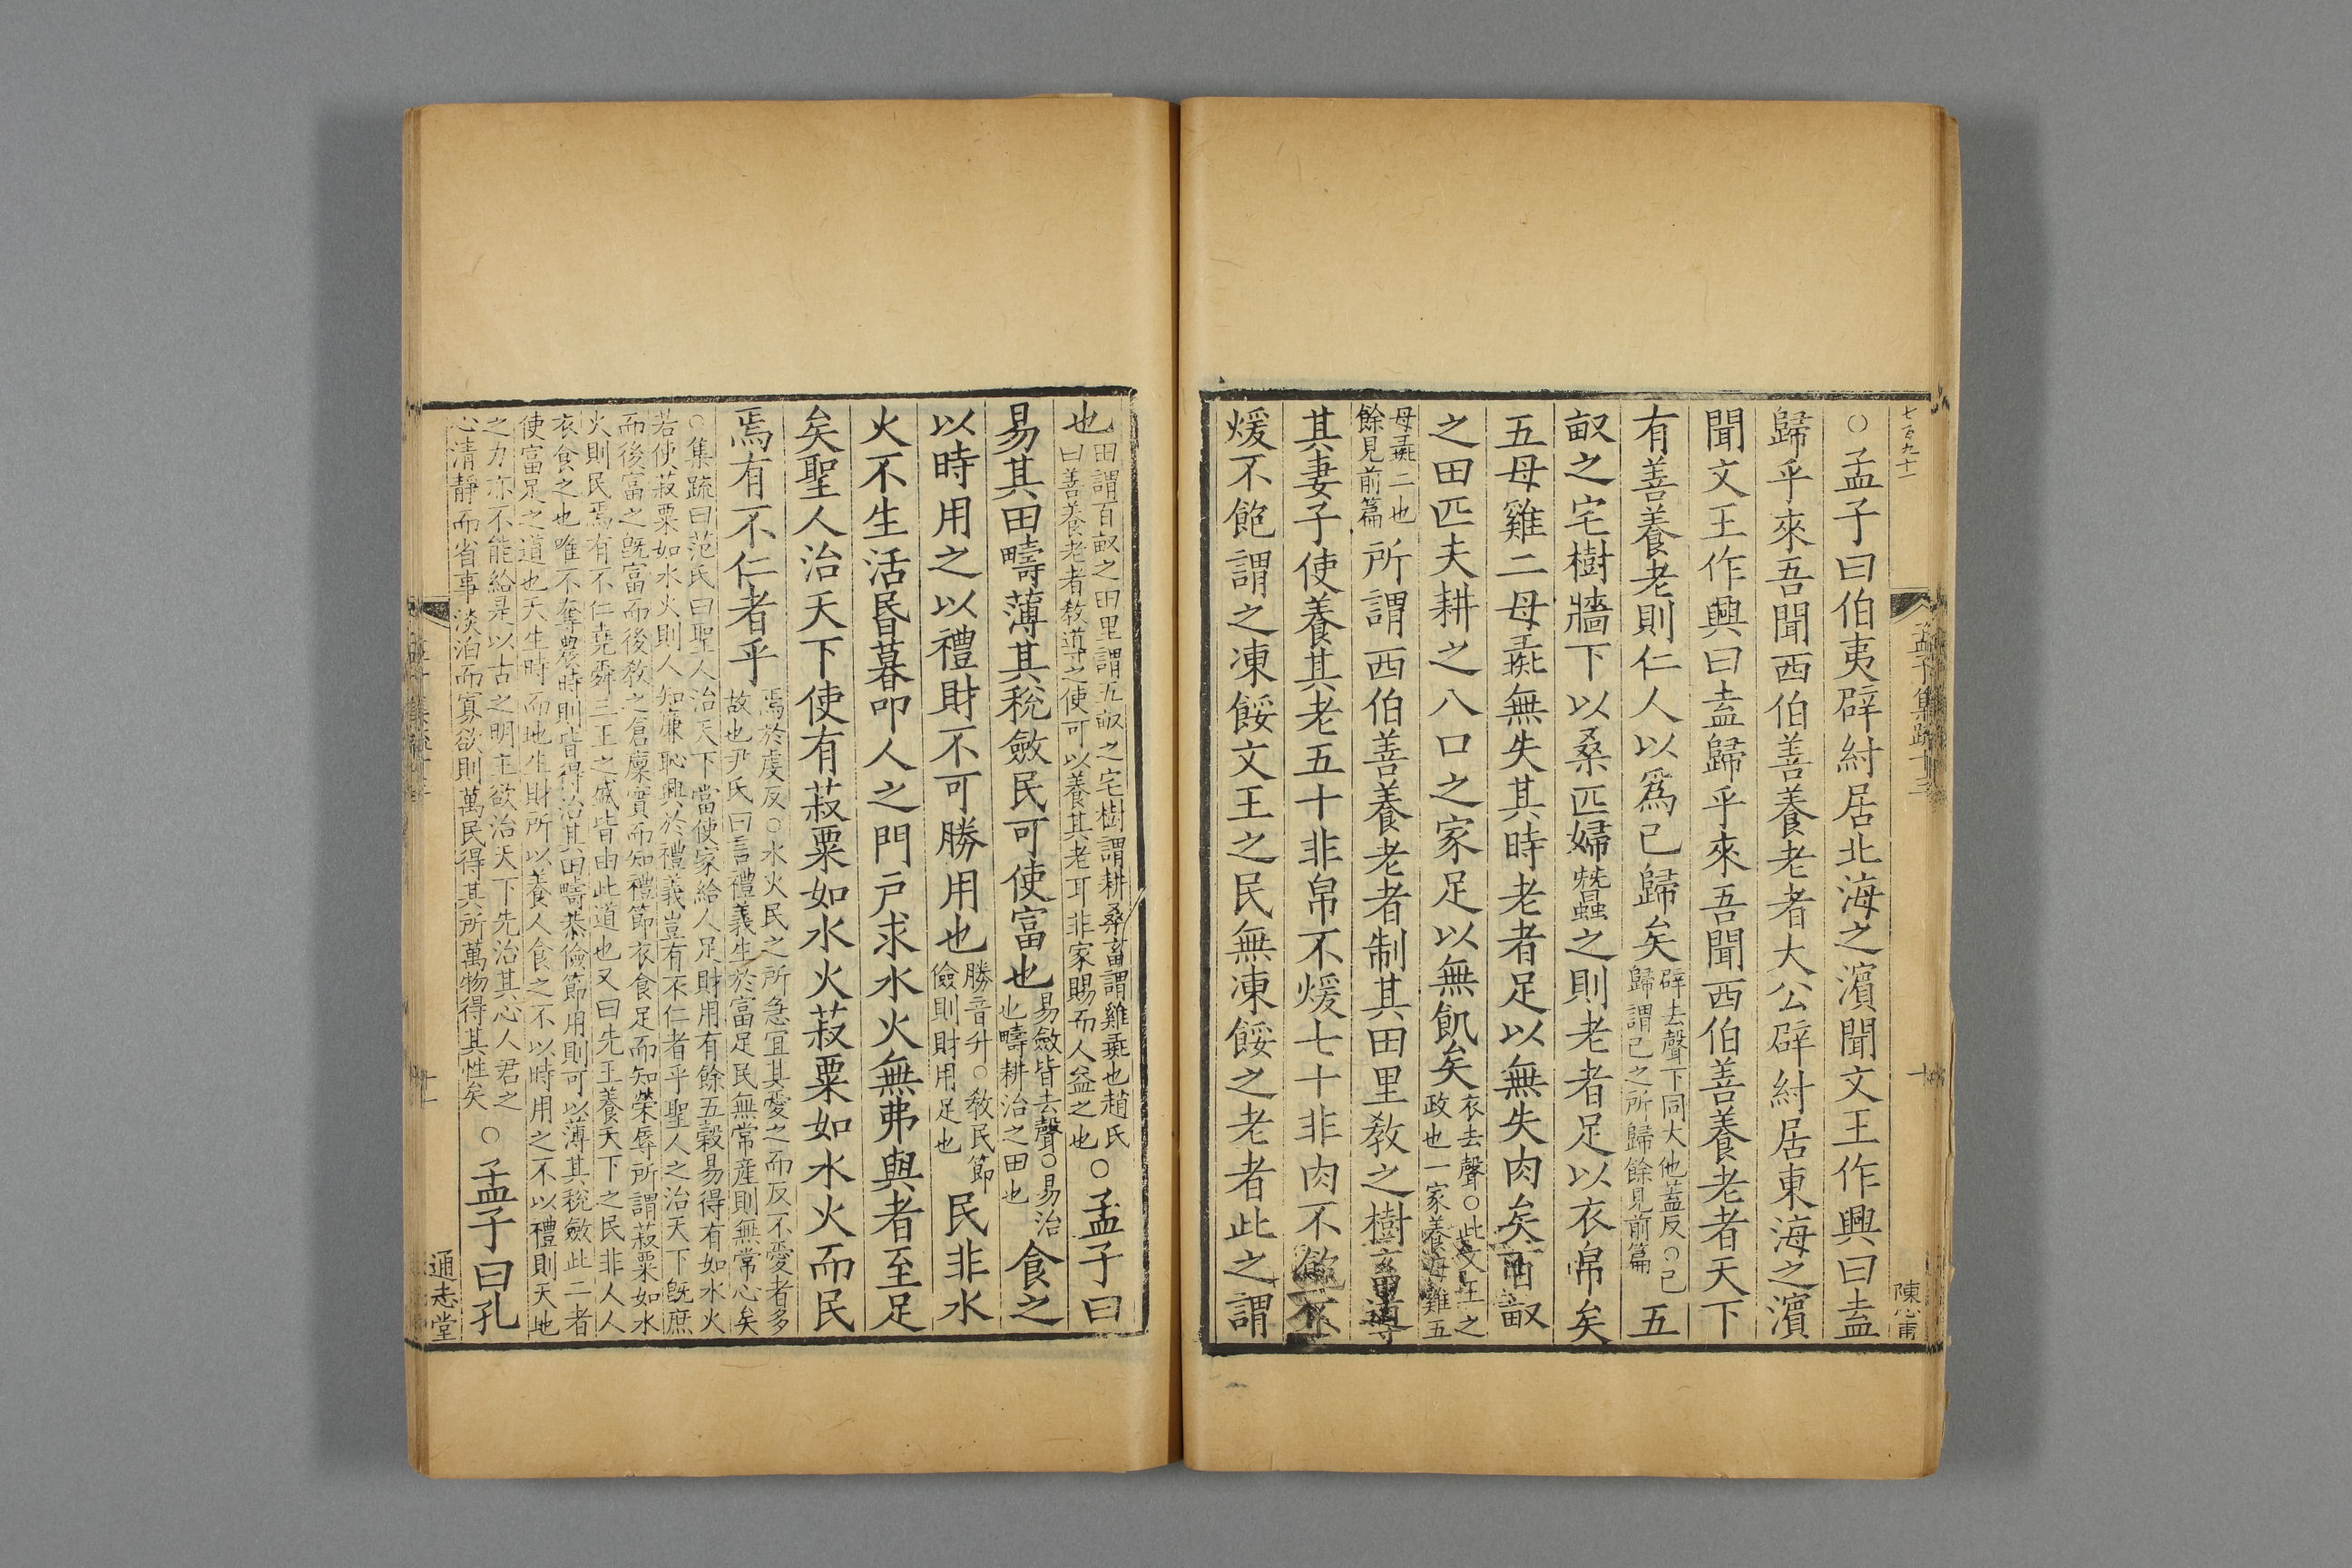 七百九十一
孟子集疏十三
十
陳心甫
○孟子曰伯夷辟紂居北海之濱聞文王作興曰盍
歸乎來吾聞西伯善養老者大公辟紂居東海之濱
聞文王作興曰盍歸乎來吾聞西伯善養老者天下
有善養老則仁人以爲己歸矣
辟去聲下同大他蓋反○己
歸謂己之所歸餘見前篇
五
畝之宅樹牆下以桑匹婦蠶之則老者足以衣帛矣
五母雞二母彘無失其時老者足以無失肉矣百畝
之田匹夫耕之八口之家足以無飢矣
衣去聲○此文王之
政也一家養母雞五
母彘二也
餘見前篇
所謂西伯善養老者制其田里敎之樹畜導
其妻子使養其老五十非帛不煖七十非肉不飽不
煖不飽謂之凍餒文王之民無凍餒之老者此之謂
也
田謂百畝之田里謂五畝之宅樹謂耕桑畜謂雞彘也趙氏
曰善養老者敎道之使可以養其老耳非家賜而人益之也
○孟子曰
易其田疇薄其稅斂民可使富也
易斂皆去聲○易治
也疇耕治之田也
食之
以時用之以禮財不可勝用也
勝音升○敎民節
儉則財用足也
民非水
火不生活昏暮叩人之門戸求水火無弗與者至足
矣聖人治天下使有菽粟如水火菽粟如水火而民
焉有不仁者乎
焉於虔反○水火民之所急宜其愛之而反不愛者多
故也尹氏曰言禮義生於富足民無常産則無常心矣
○集疏曰范氏曰聖人治天下當使家給人足財用有餘五穀易得有如水火
若使菽粟如水火則人知廉恥興於禮義豈有不仁者乎聖人之治天下旣庶
而後富之旣富而後敎之倉廩實而知禮節衣食足而知榮辱所謂菽粟如水
火則民焉有不仁堯舜三王之盛皆由此道也又曰先王養天下之民非人人
衣食之也唯不奪農時則皆得治其田疇恭儉節用則可以薄其稅斂此二者
使富足之道也天生時而地生財所以養人食之不以時用之不以禮則天地
之力亦不能給是以古之明主欲治天下先治其心人君之
心清靜而省事淡泊而寡欲則萬民得其所萬物得其性矣
○孟子曰孔
十一
通志堂